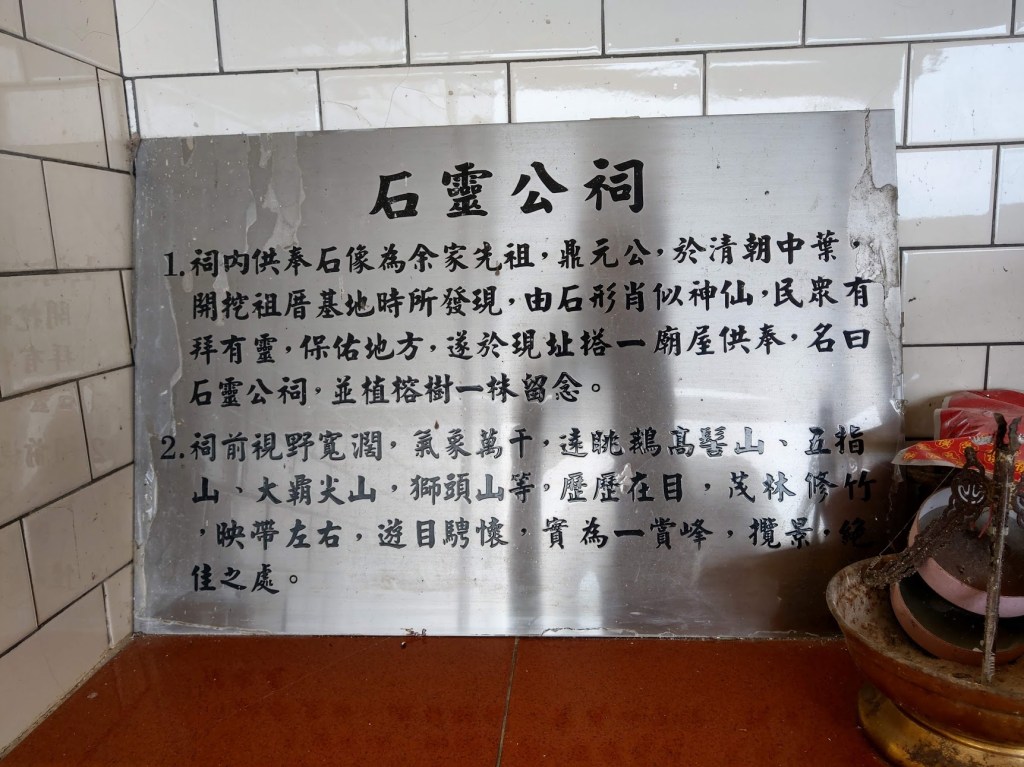 石靈公祠
1.祠內供奉石像為余家先祖,鼎元公,於清朝中葉,
開挖祖厝基地時所發現,由石形肖似神仙,民眾有
拜有靈,保佑地方,遂於現址搭一廟屋供奉,名曰
石靈公祠,並植榕樹一株留念。
2.祠前視野寬濶,氣象萬千,遠眺鵝髻山、五指
山、大霸尖山,獅頭山等,歷歷在目,茂林修竹
,映帶左右,遊目騁懷,實為一賞峰,攬景,絕
佳之處。